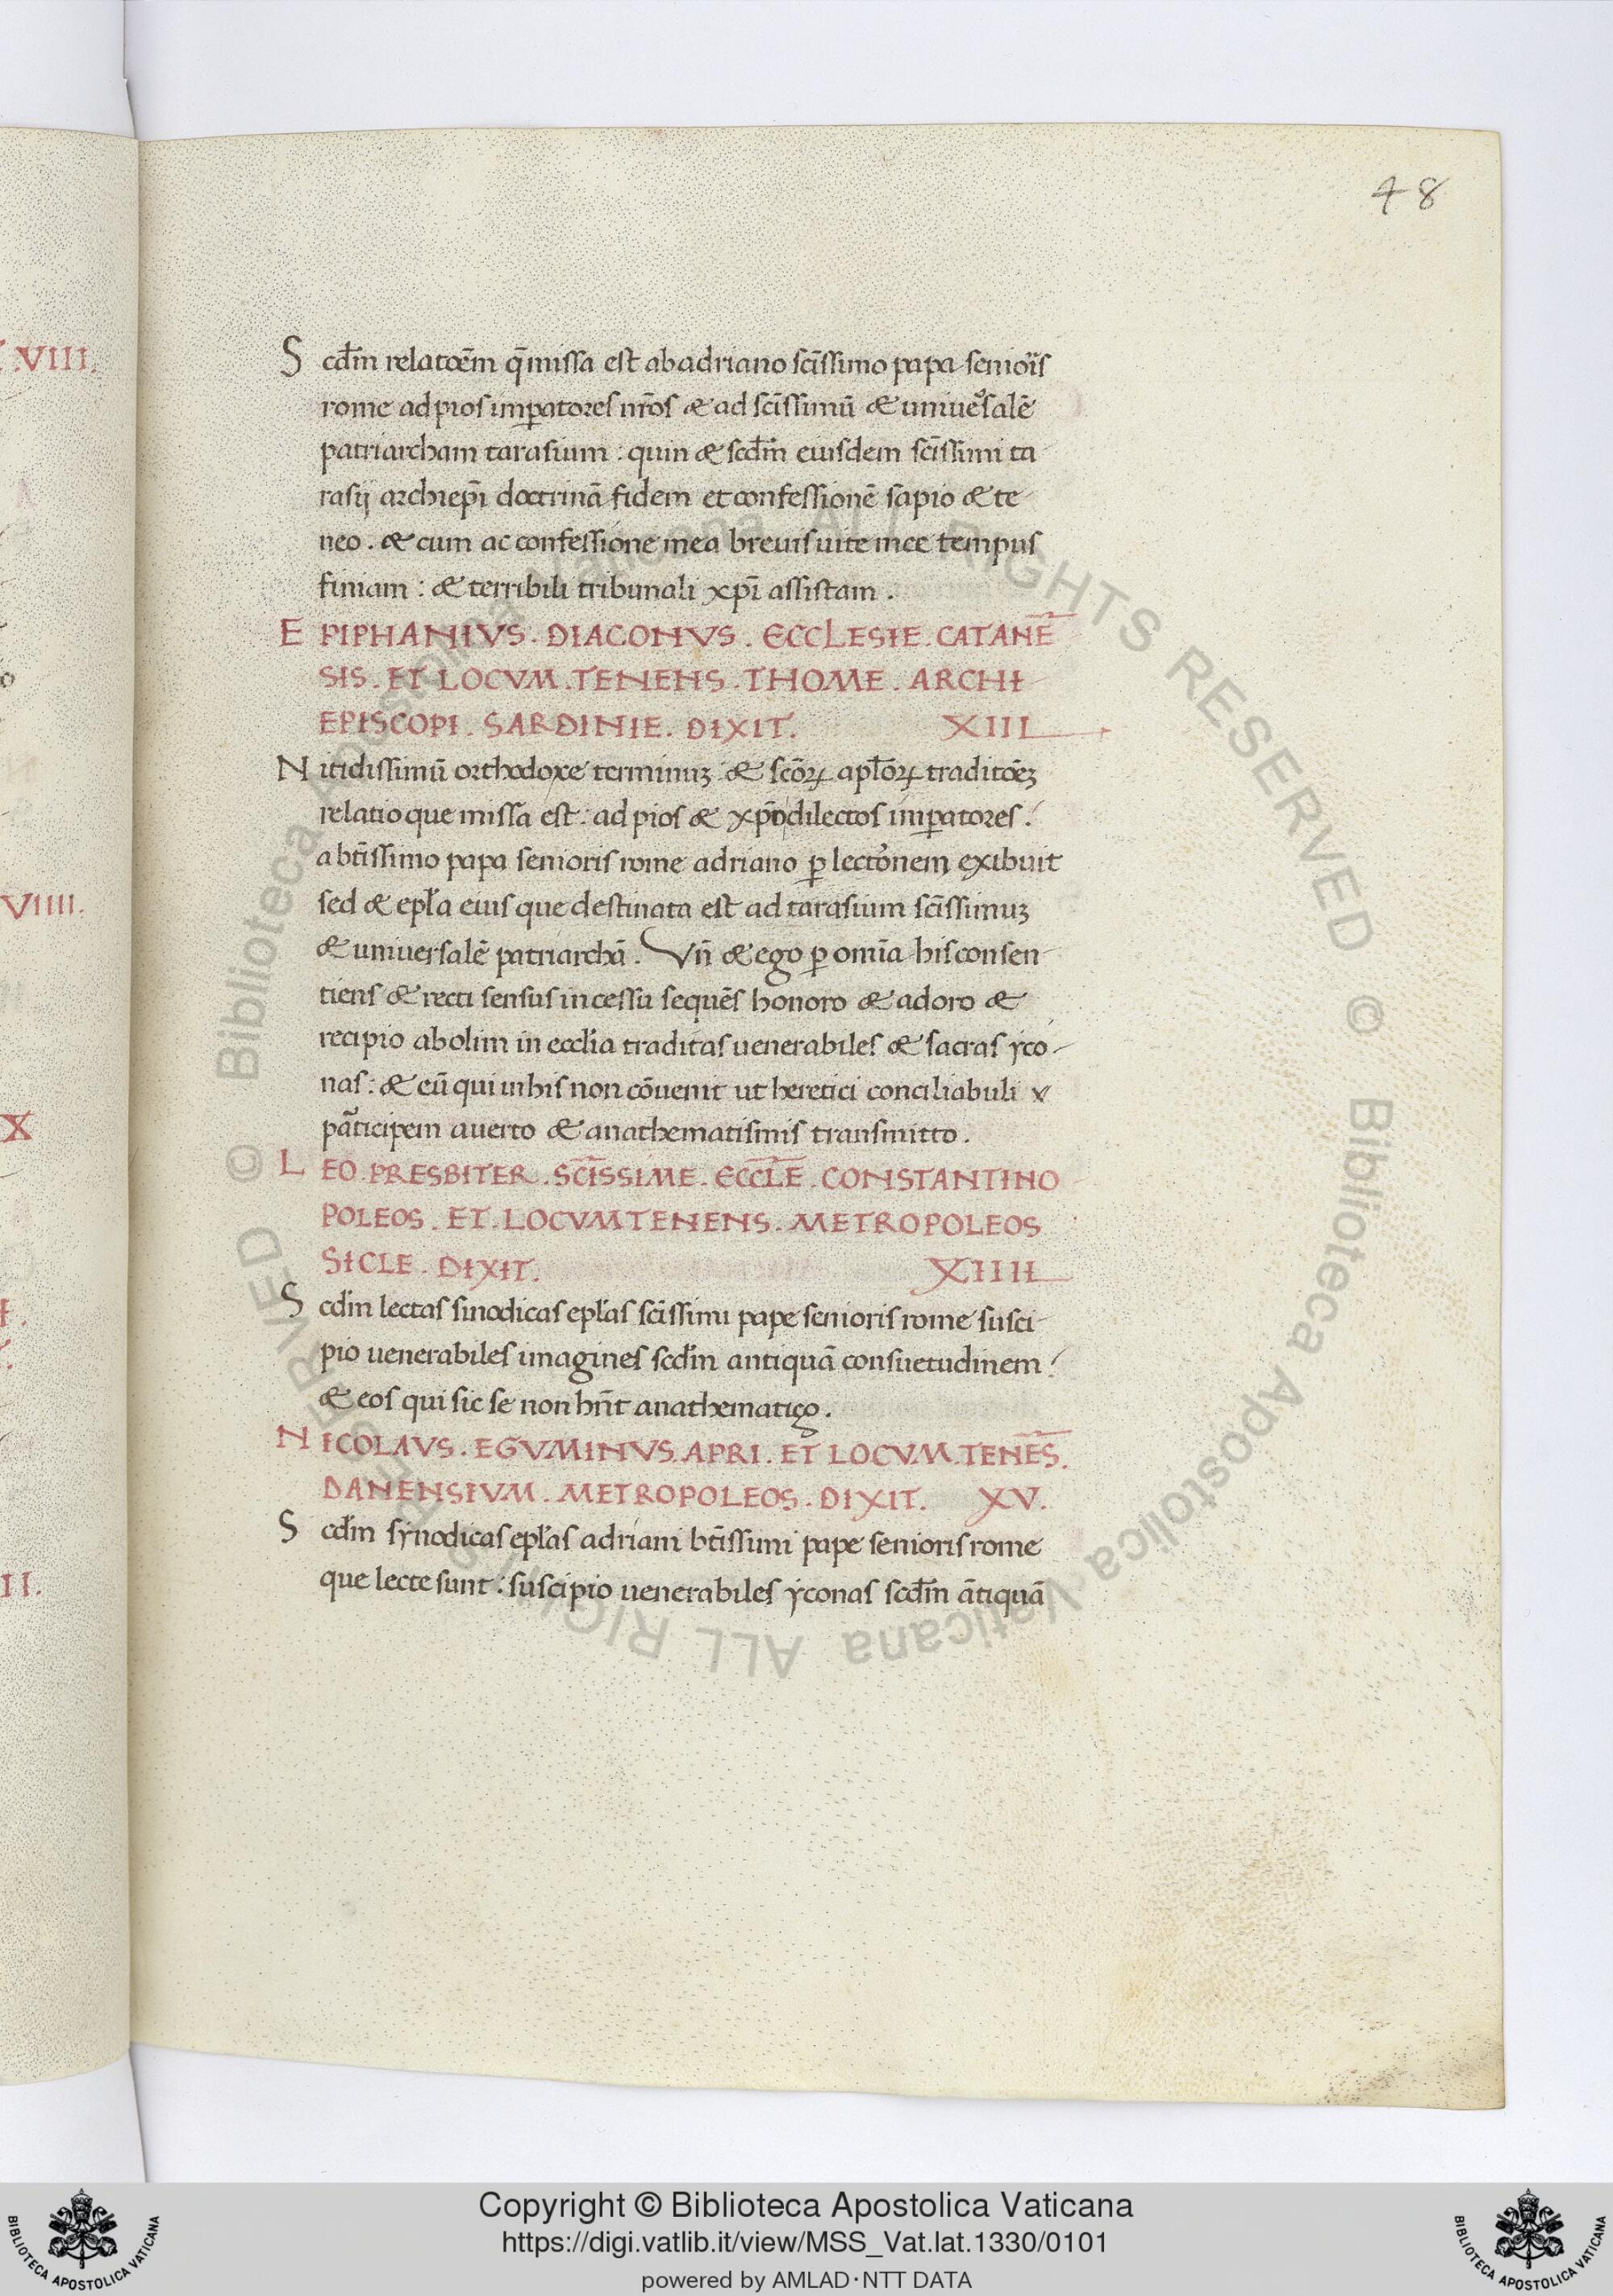 48
S cdm̄ relatoēm q̄ missa est ab adriano scīssimo papa senioris
rome ad pios imꝑatores nr̄os & ad scīssimū & uniuersalē
patriarcham tarasium : quin & scdm̄ eiusdem scīssimi ta-
rasij archiepī doctrinā fidem et confessionē sapio & te-
neo . & cum ac confessione mea breuis uite mee tempus
finiam : & terribili tribunali xpī assistam .
E PIPHANIVS . DIACONVS . ECCLESIE . CATANĒ
SIS . ET LOCVM . TENENS . THOME . ARCHI-
EPISCOPI . SARDINIE . DIXIT . XIII
N itidissimū orthodoxe terminuꝫ & scōꝝ apl̄oꝝ traditōeꝫ
relatio que missa est : ad pios & xpōdilectos imꝑatores .
a btīssimo papa senioris rome adriano ꝑ lectōnem exibuit
sed & epl̄a eius que destinata est ad tarasium scīssimuꝫ
& universalē patriarchā . Vn̄ & ego ꝑ omīa his consen-
tiens & recti sensus incessu sequēs honoro & adoro &
recipio ab olim in ecclīa traditas uenerabiles & sacras yco-
nas : & eū qui in his non cōuenit ut heretici conciliabuli
participem auerto & anathematismis transmitto .
L EO . PRESBITER . SCĪSSIME . ECCLĒ . CONSTANTINO
POLEOS . ET . LOCVMTENENS . METROPOLEOS
SICLE . DIXIT . XIIII
S cdm̄ lectas sinodicas epl̄as scīssimi pape senioris rome susci-
pio uenerabiles imagines scdm̄ antiquā consuetudinem :
& eos qui sic se non hn̄t anathematiço .
N ICOLAVS . EGVMINVS . APRI . ET LOCVM . TENĒS .
DANENSIVM . METROPOLEOS . DIXIT . XV .
S cdm̄ synodicas epl̄as adriani btīssimi pape senioris rome
que lecte sunt : suscipio uenerabiles yconas scdm̄ ātiquā
VIII.
VIIII.
X
II.
© Biblioteca Apostolica Vaticana ALL RIGHTS RESERVED © Biblioteca Apostolica Vaticana ALL RIGHTS RESERVED
Copyright © Biblioteca Apostolica Vaticana
https://digi.vatlib.it/view/MSS_Vat.lat.1330/0101
powered by AMLAD·NTT DATA
BIBLIOTECA APOSTOLICA VATICANA
BIBLIOTECA APOSTOLICA VATICANA